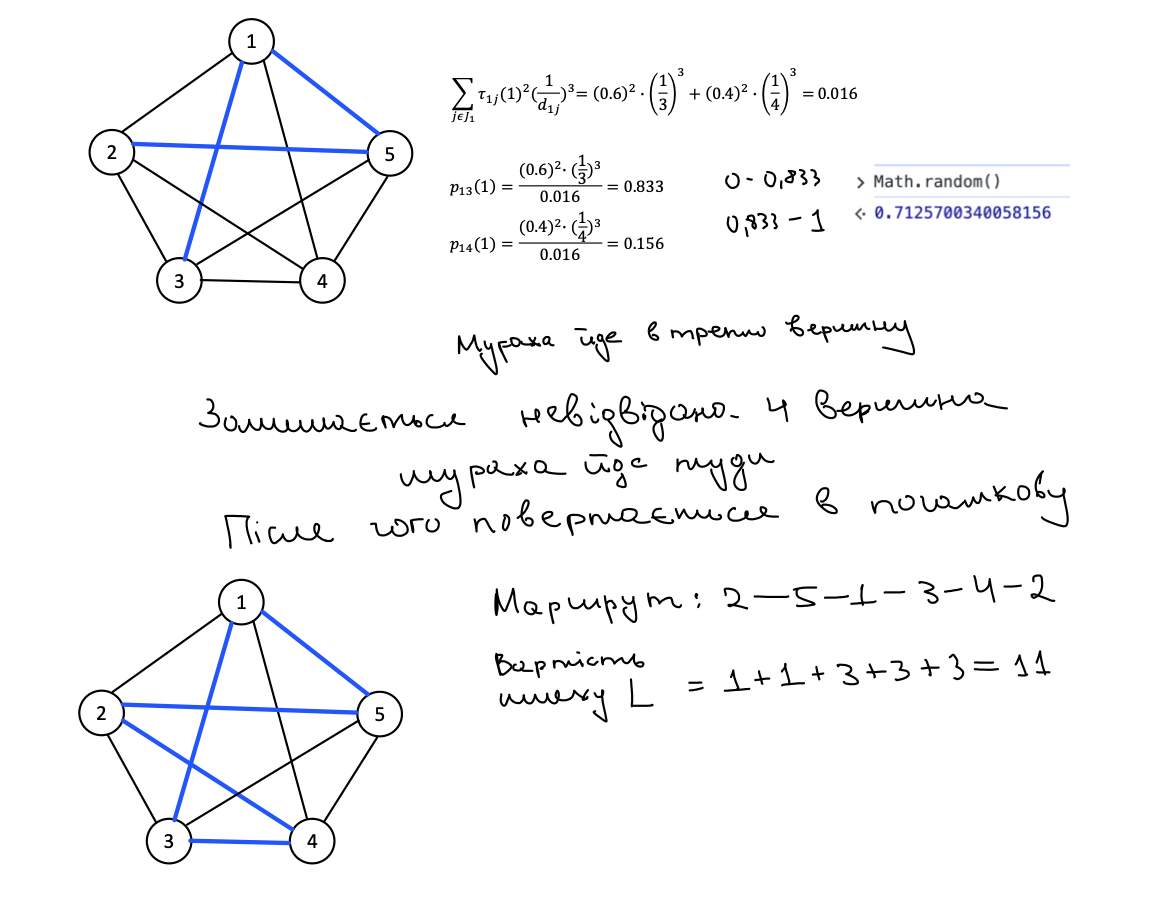 1
2
5
3
4
∑ j∈J₁ τ₁ⱼ(1)²(1/d₁ⱼ)³= (0.6)² · (1/3)³ + (0.4)² · (1/4)³ = 0.016
p₁₃(1) = (0.6)²· (1/3)³ / 0.016 = 0.833
p₁₄(1) = (0.4)²· (1/4)³ / 0.016 = 0.156
0 - 0,833
0,833 - 1
> Math.random()
<· 0.7125700340058156
Мураха йде в третю вершину
Залишається невідвідана 4 вершина
мураха йде туди
Після чого повертається в початкову
1
2
5
3
4
Маршрут: 2—5—1—3—4—2
Вартість
шляху L = 1+1+3+3+3 = 11